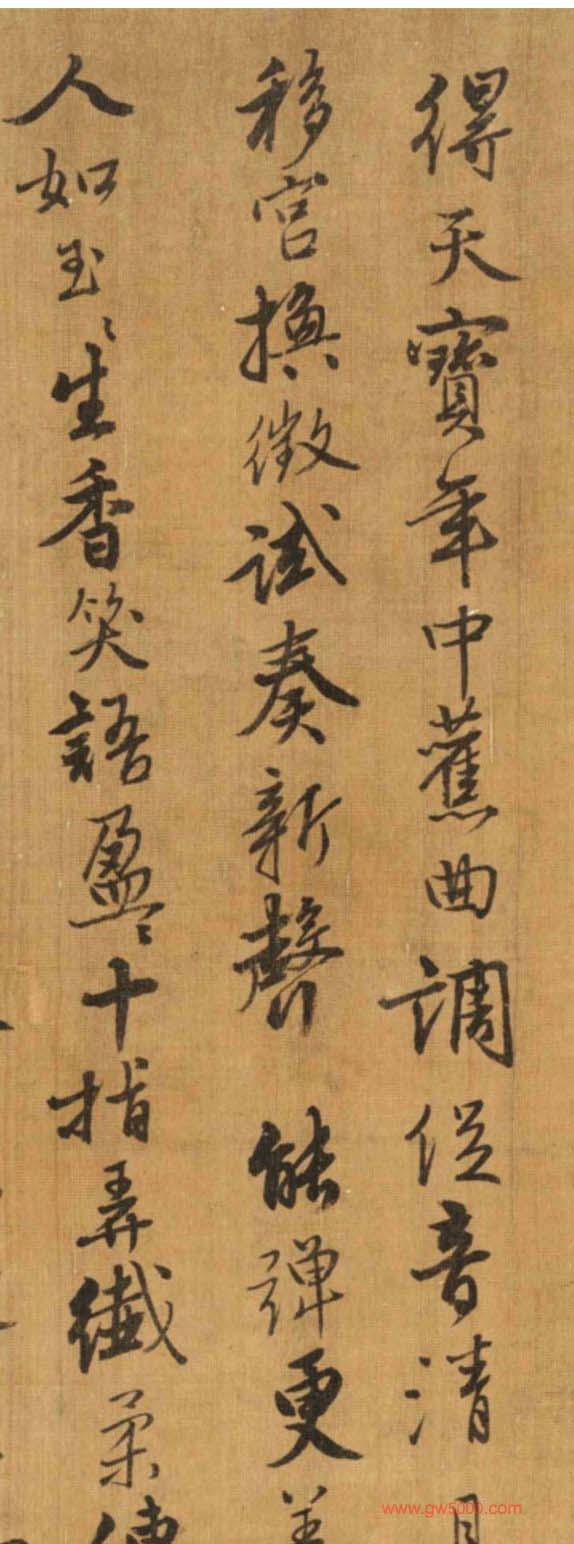 得天寶年中舊曲調促音清
移宮換徵試奏新聲 能彈更
人如玉〻生香笑語盈〻十指弄纖柔
www.gw5000.com